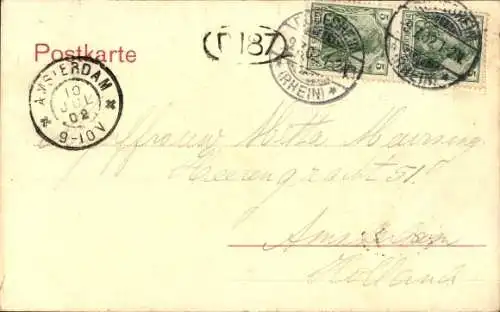 (D 187)
Postkarte
AMSTERDAM
10
JUL
02
9-10V
(RHEIN)
5
5
Mejuffrouw Metha Meursing
Heerengracht 51
Amsterdam
Holland